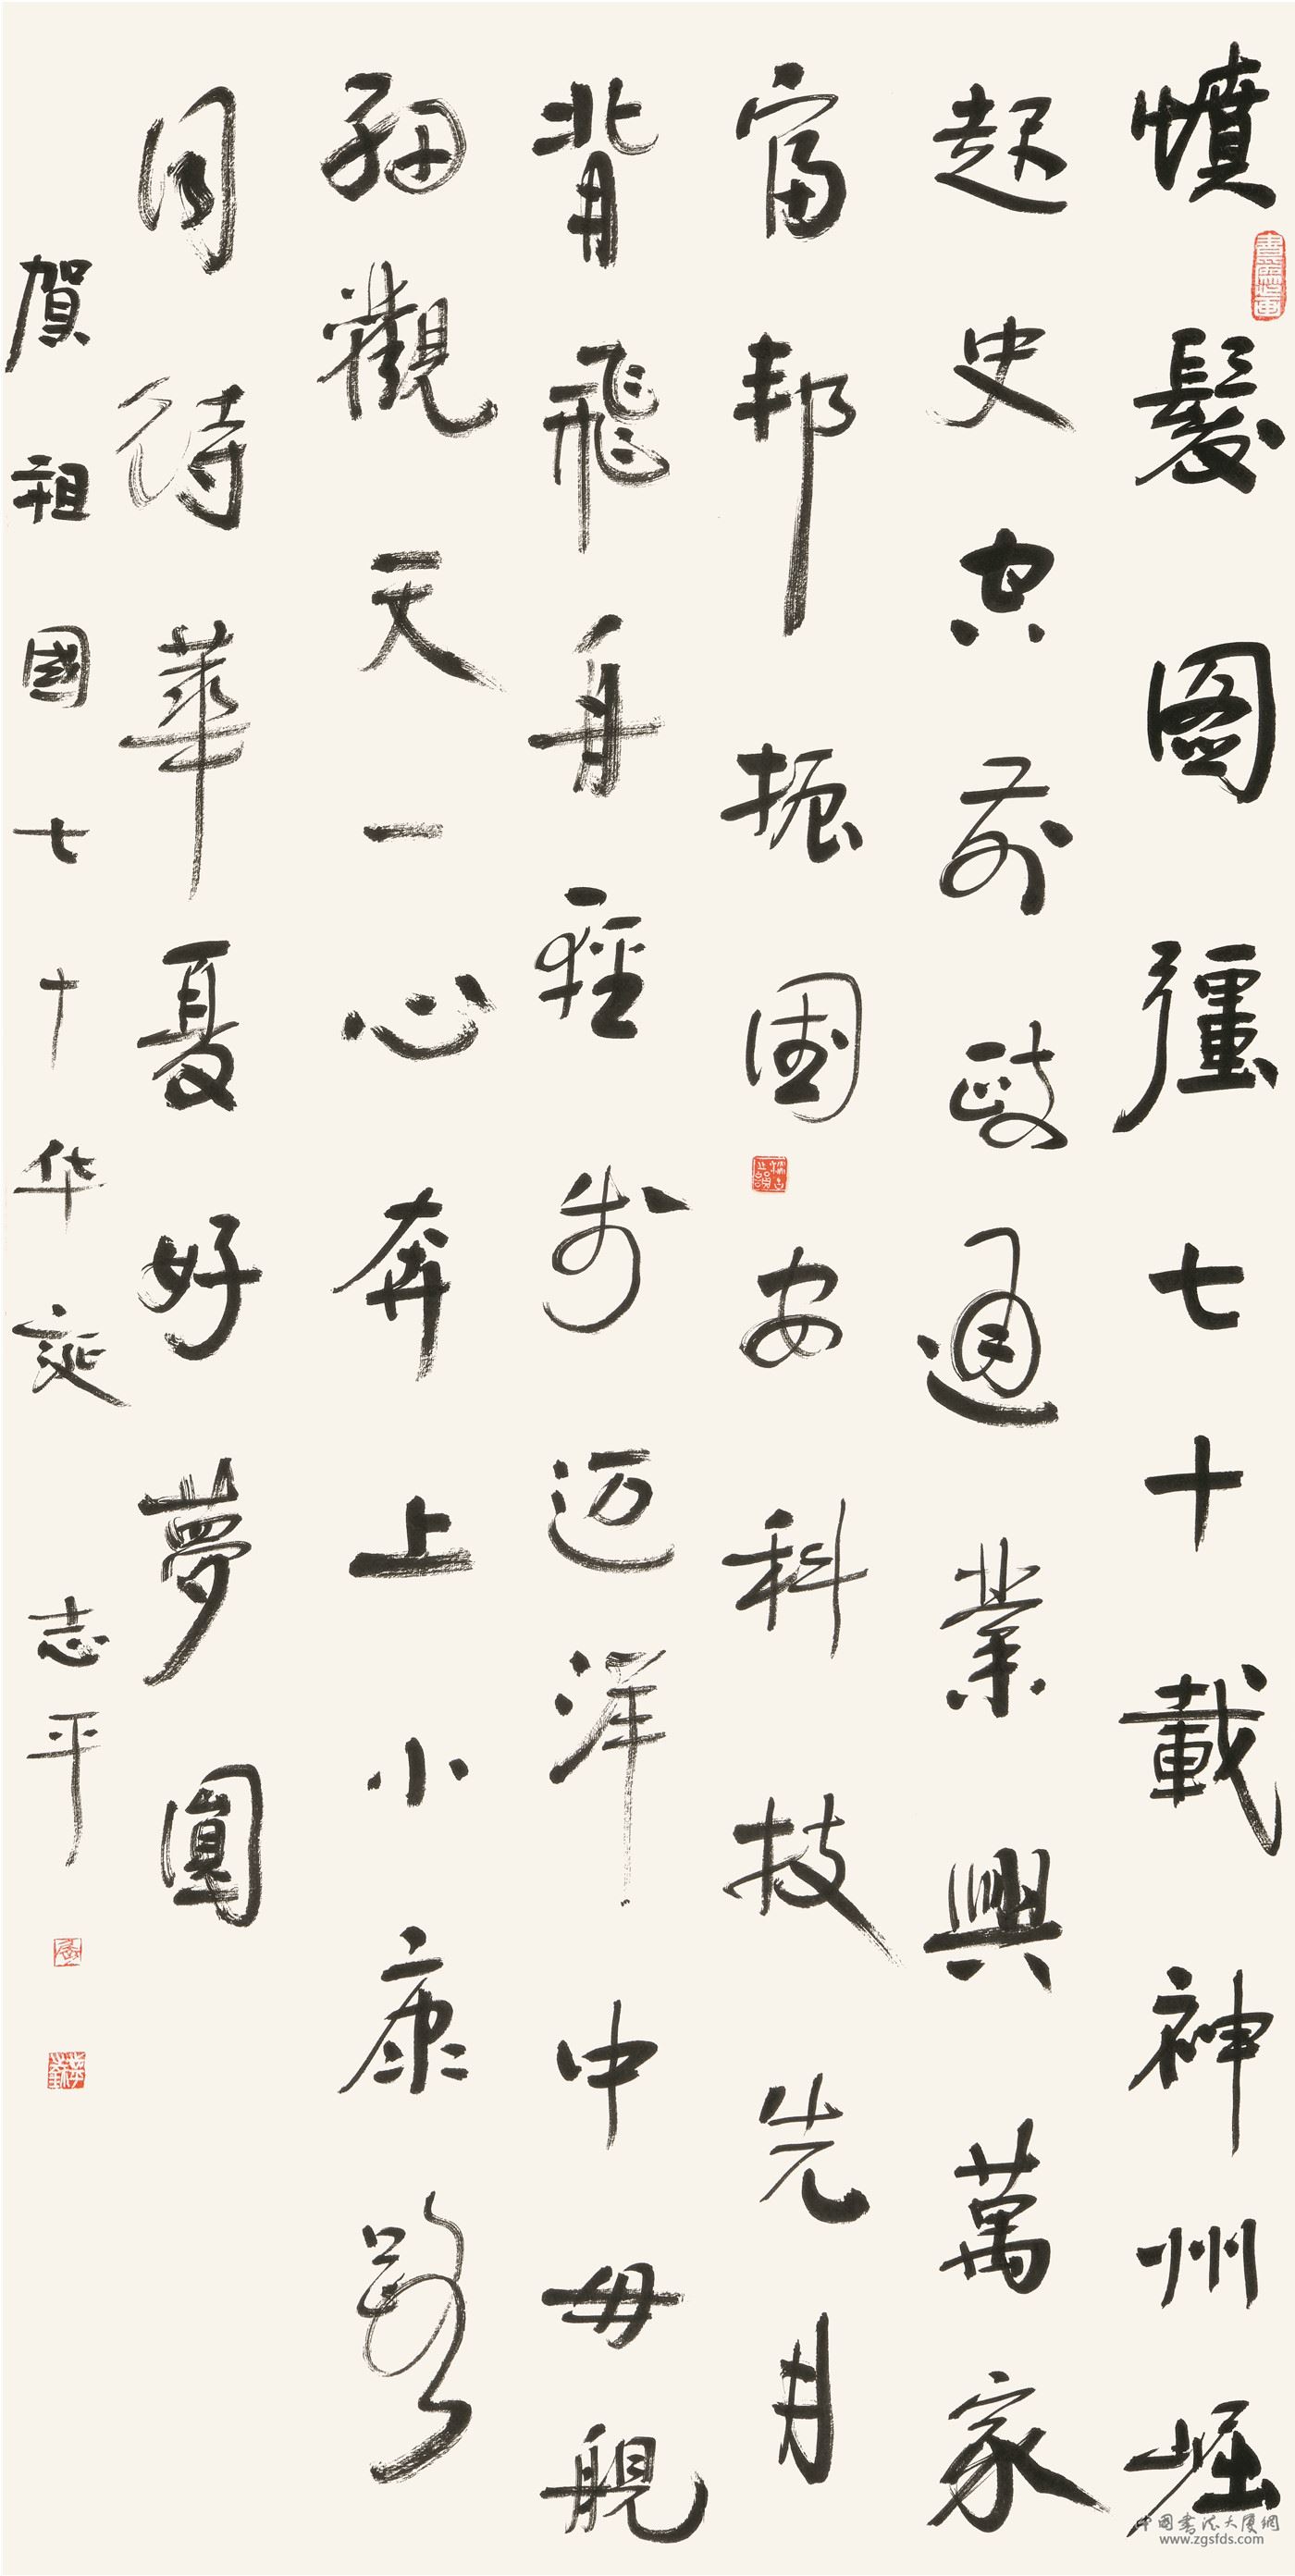 憤髮圖彊七十載神州崛
起史空前政通業興萬家
富邦振國安科技先月
背飛舟輕步迈洋中母舰
細觀天一心奔上小康路
同待華夏好夢圓
賀祖國七十华誕 志平
中國書法大廈網
www.zgsfds.com